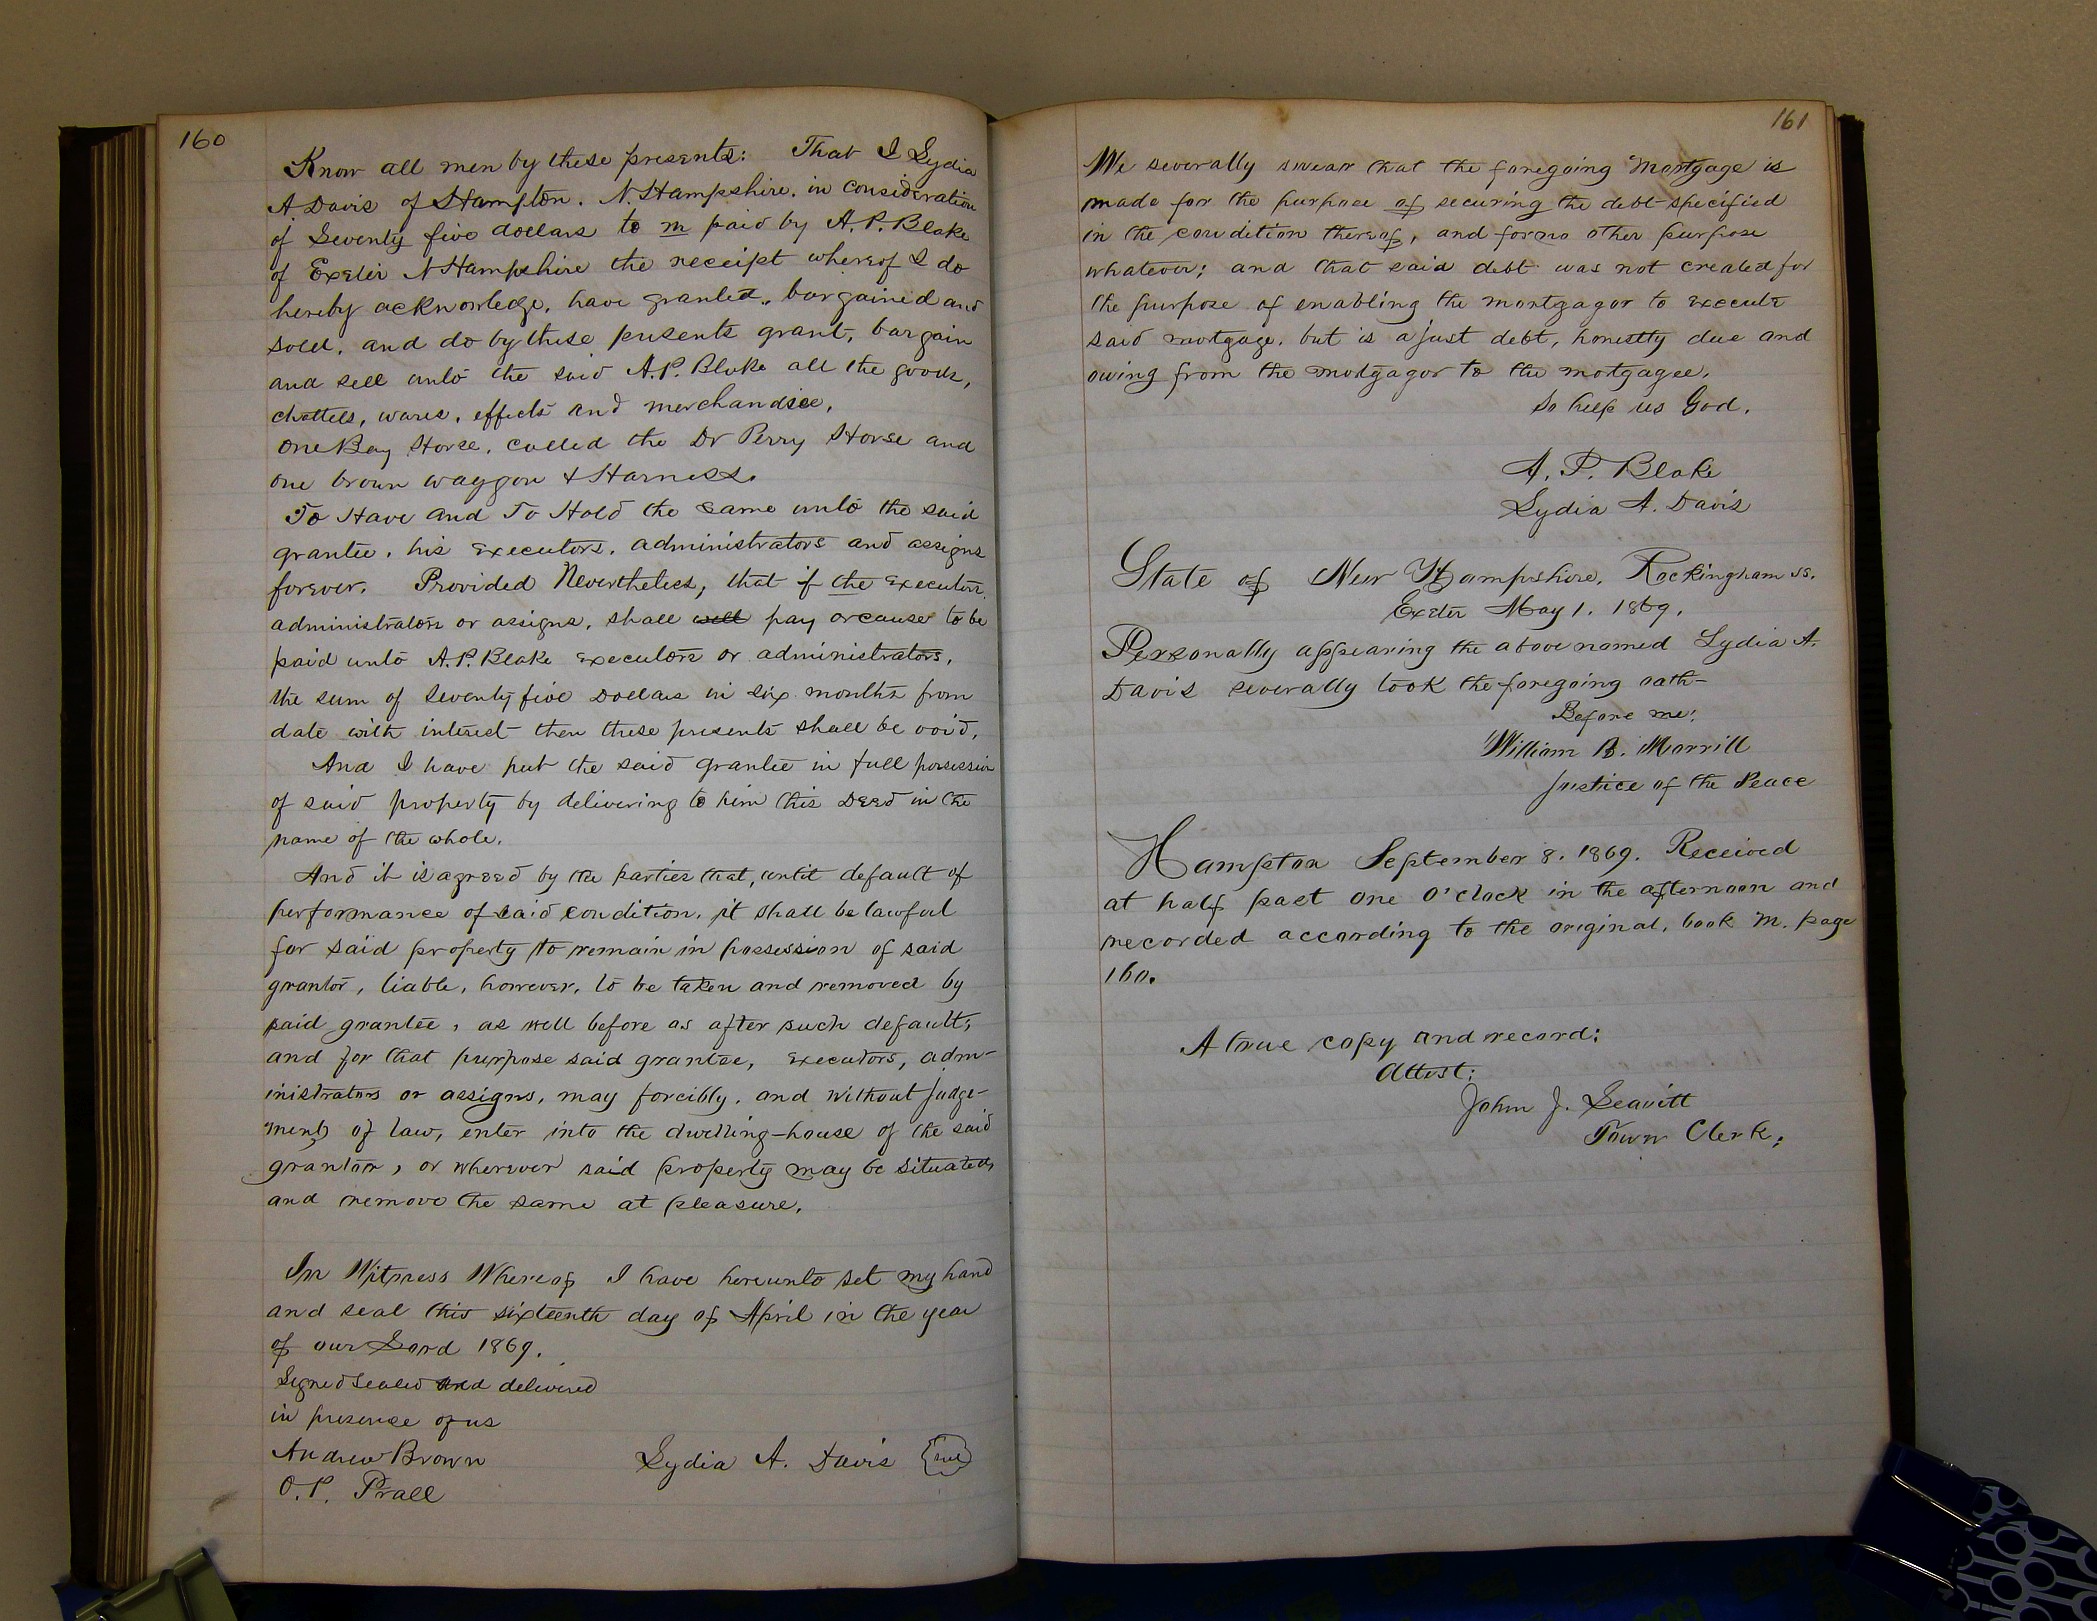 160
Know all men by these presents: That I Lydia
A Davis of Hampton. N. Hampshire. in consideration
of Seventy five dollars to m paid by A. P. Blake
of Exeter N Hampshire the receipt whereof I do
hereby acknowledge, have granted, bargained and
sold, and do by these presents grant, bargain
and sell unto the said A. P. Blake all the goods,
chattels, wares, effects and merchandise,
One Bay Horse, called the Dr Perry Horse and
one brown waggon & Harness.
To Have and To Hold the same unto the said
grantee, his executors, administrators and assigns
forever. Provided Nevertheless, that if the executors
administrators or assigns, shall well pay or cause to be
paid unto A. P. Blake executors or administrators,
the sum of Seventy five Dollars in six months from
date with interest then these presents shall be void.
And I have put the said grantee in full possession
of said property by delivering to him this Deed in the
name of the whole.
And it is agreed by the parties that, until default of
performance of said condition, it shall be lawful
for said property to remain in possession of said
grantor, liable, however, to be taken and removed by
said grantee, as well before as after such default;
and for that purpose said grantee, executors, adm-
inistrators or assigns, may forcibly, and without judge-
ment of law, enter into the dwelling-house of the said
grantor, or wherever said property may be situated,
and remove the same at pleasure.
In Witness Whereof I have hereunto set my hand
and seal this sixteenth day of April in the year
of our Lord 1869.
Signed Sealed and delivered
in presence of us
Andrew Brown Lydia A. Davis seal
O. P. Prall
161
We severally swear that the foregoing Mortgage is
made for the purpose of securing the debt specified
in the condition thereof, and for no other purpose
whatever; and that said debt was not created for
the purpose of enabling the mortgagor to execute
said mortgage, but is a just debt, honestly due and
owing from the mortgagor to the mortgagee.
So help us God.
A. P. Blake
Lydia A. Davis
State of New Hampshire. Rockingham ss.
Exeter May 1. 1869.
Personally appearing the above named Lydia A.
Davis severally took the foregoing oath-
Before me:
William B. Morrill
Justice of the Peace
Hampton September 8. 1869. Received
at half past one O'clock in the afternoon and
recorded according to the original, book M. page
160.
A true copy and record:
Attest:
John J. Leavitt
Town Clerk.